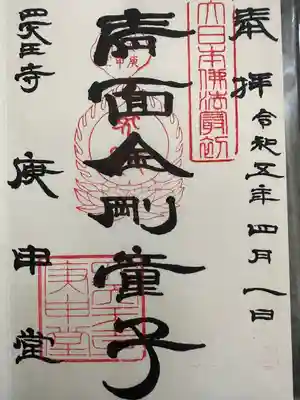 奉拝
令和五年四月一日
大日本佛法最初
庚申
青面金剛童子
四天王寺
庚申堂
四天王寺
庚申堂